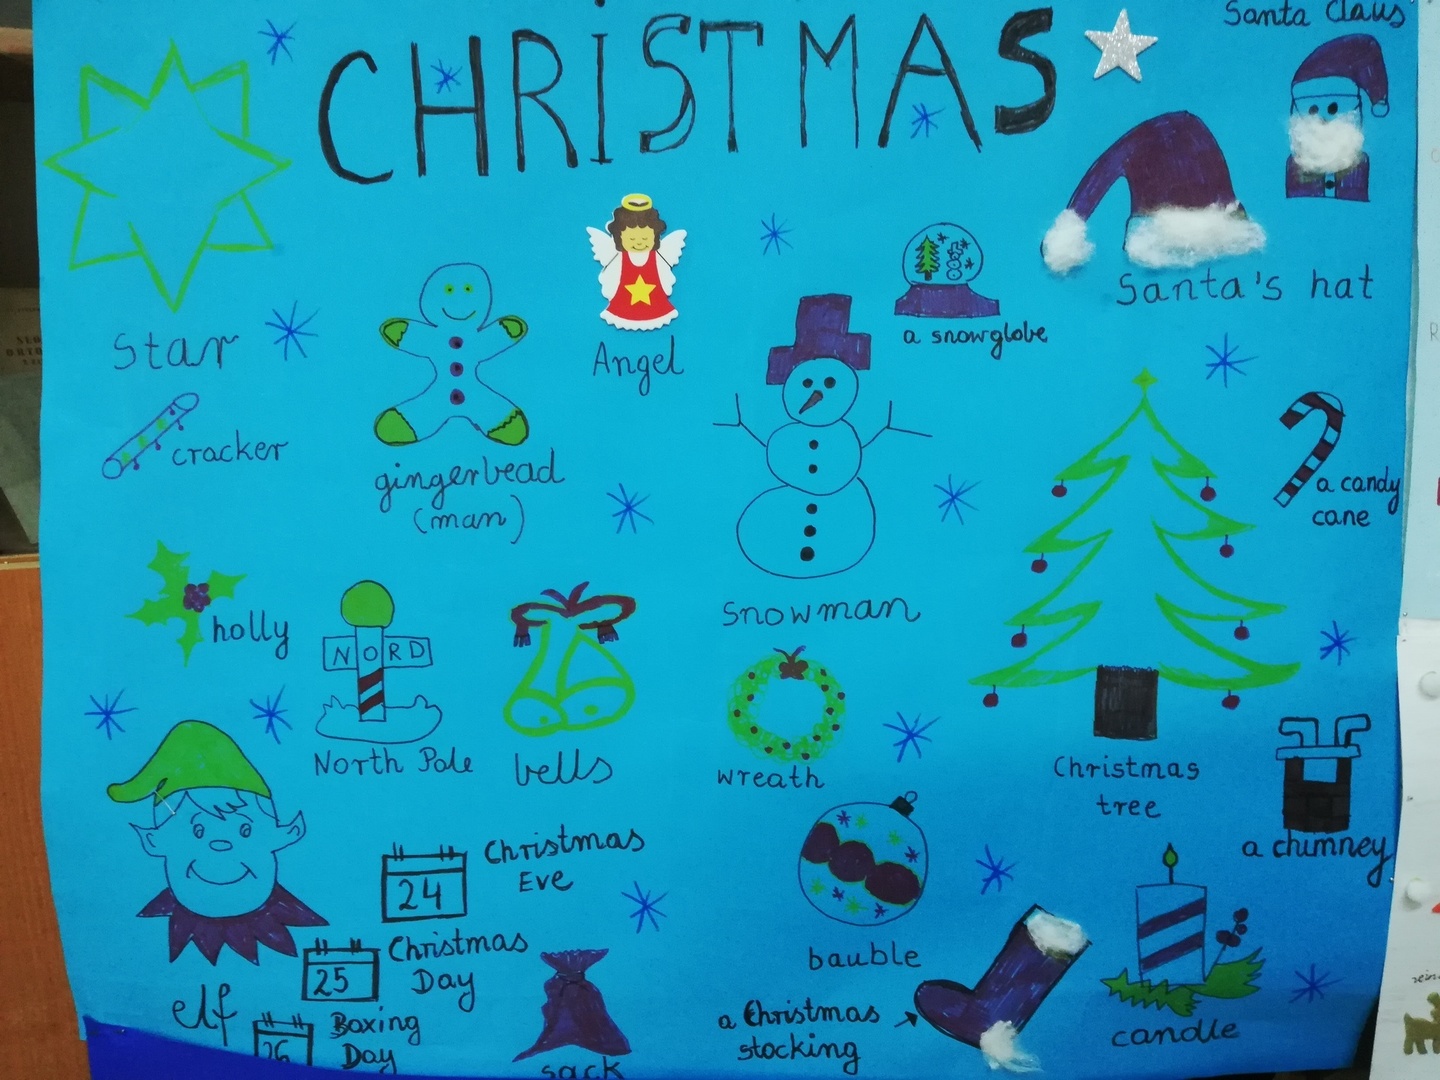 CHRISTMAS
Santa Claus
Santa's hat
Star
Angel
a snowglobe
cracker
gingerbread
(man)
a candy
cane
holly
NORD
North Pole
bells
Snowman
wreath
Christmas
tree
a chimney
24
Christmas
Eve
25
Christmas
Day
26
Boxing
Day
elf
sack
bauble
a Christmas
stocking
candle